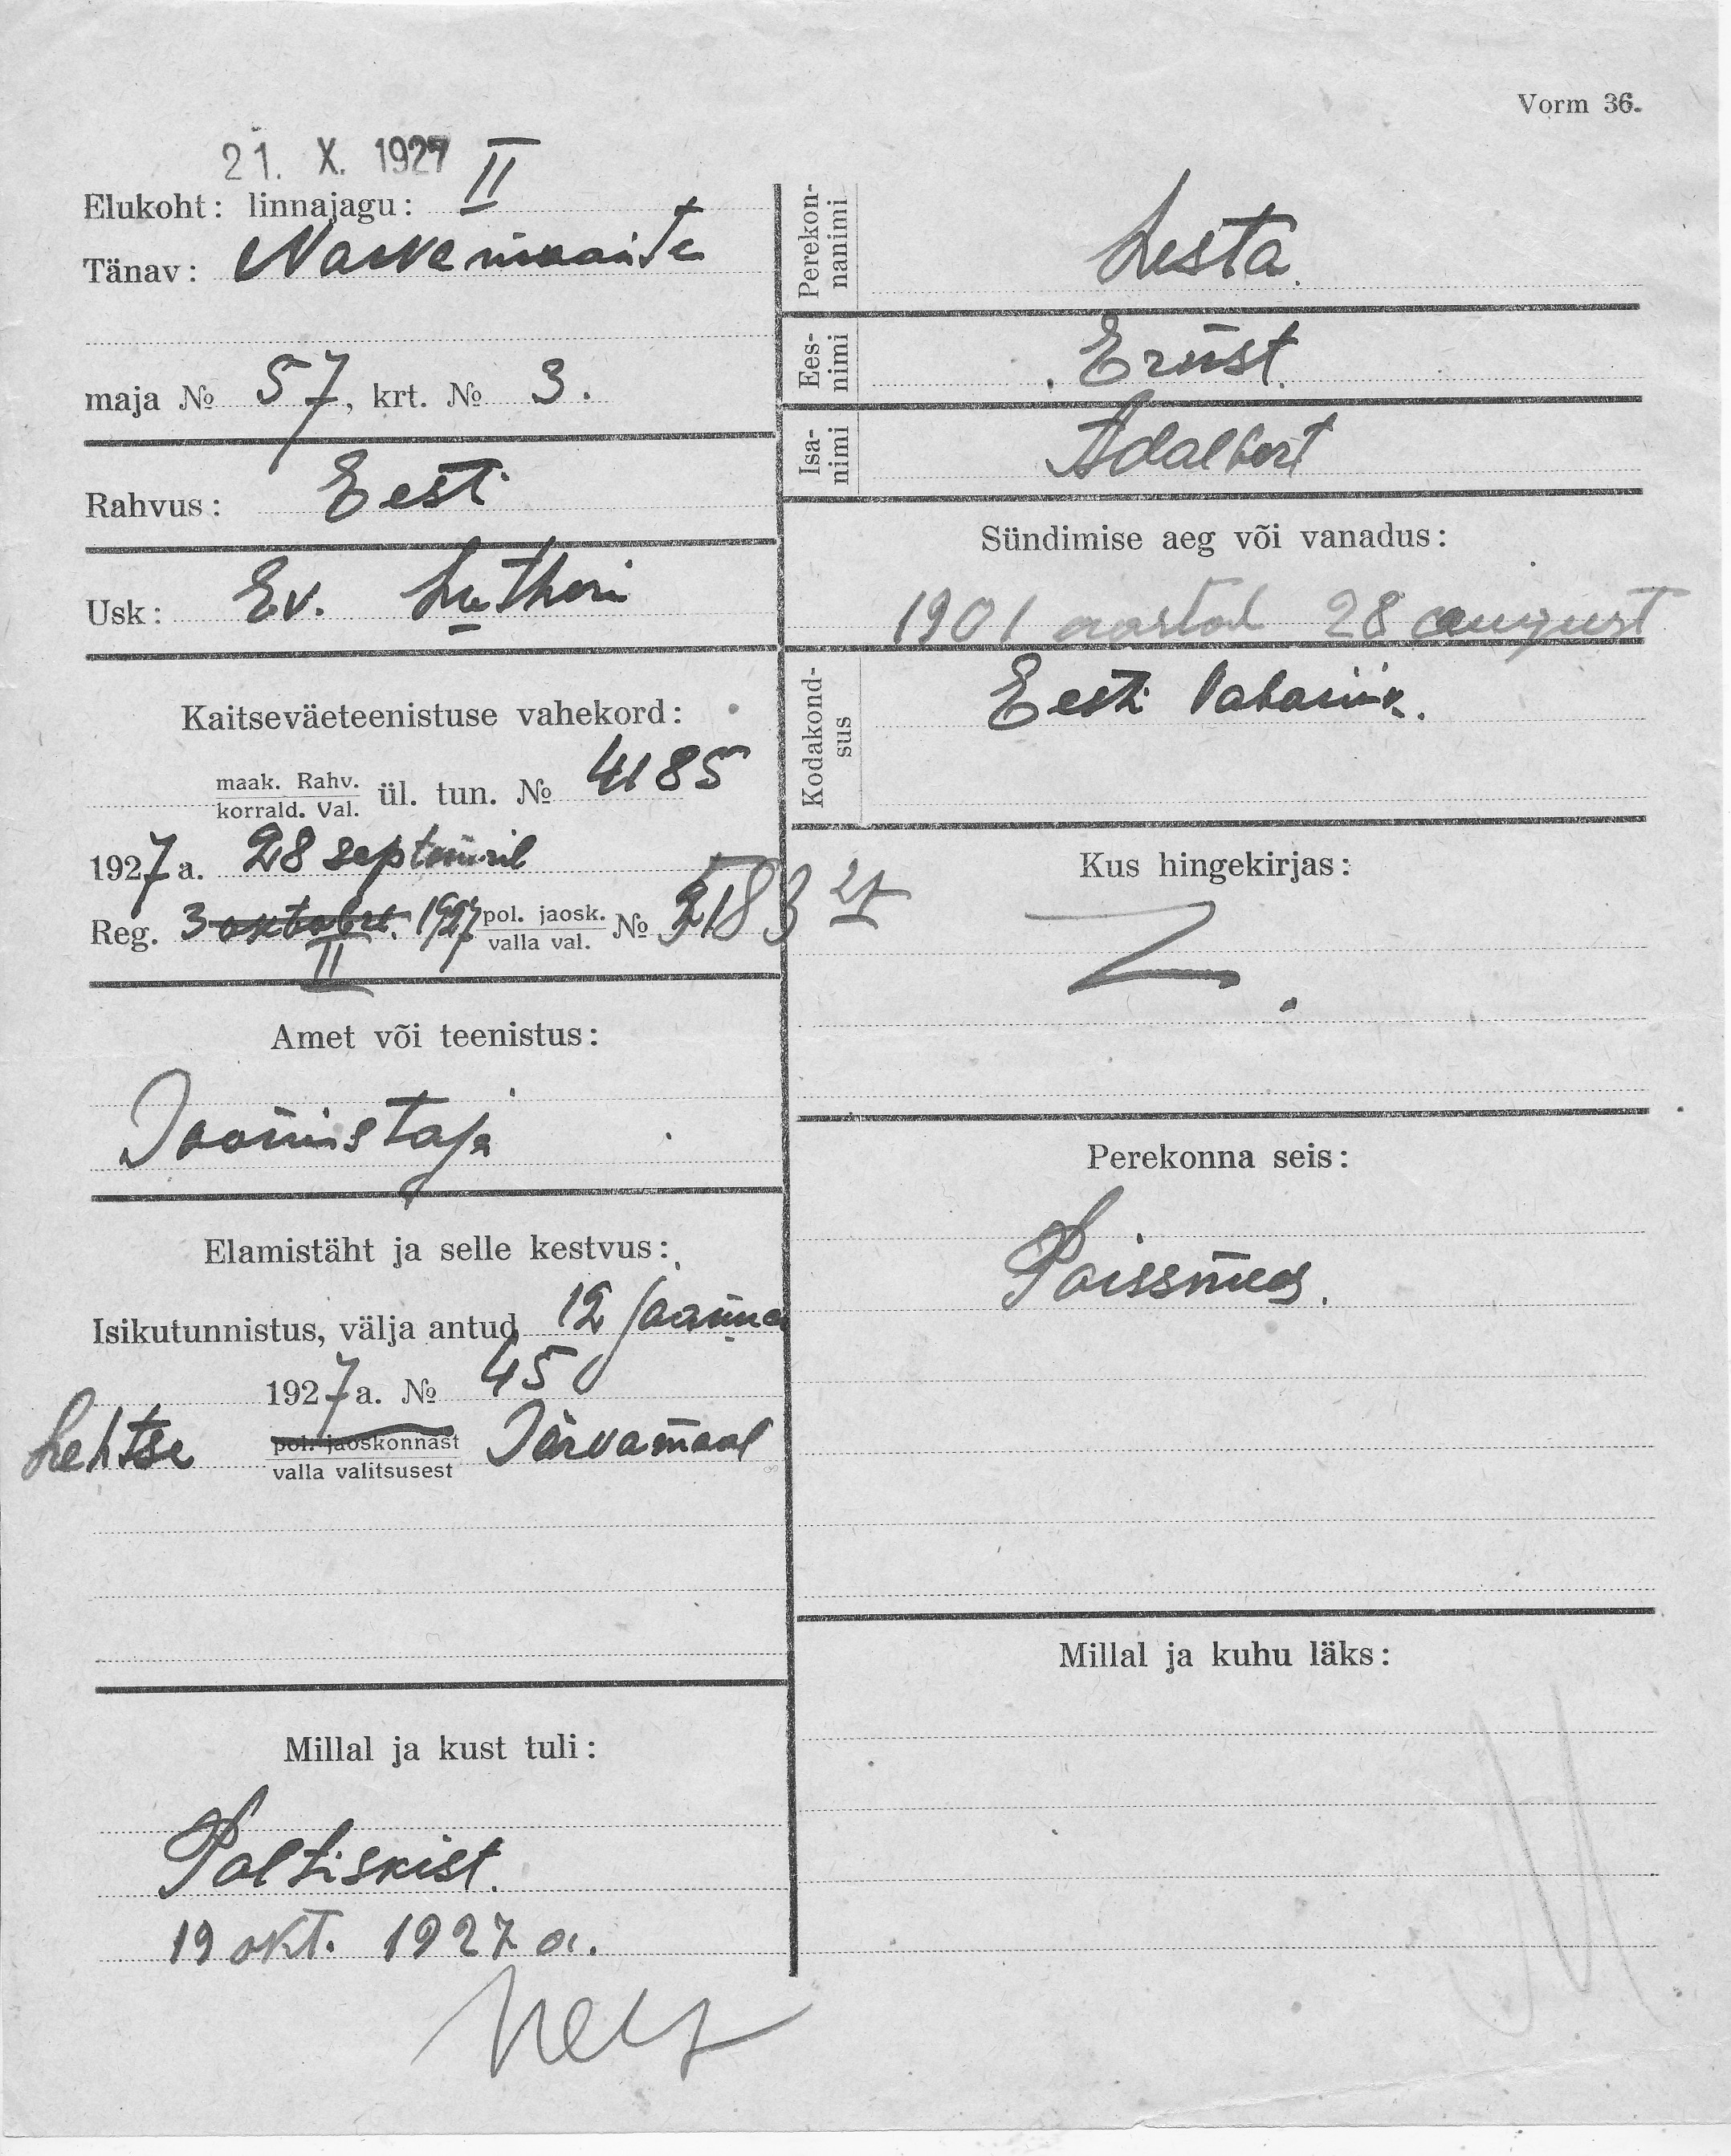 Vorm 36.
21. X. 1927
Elukoht: linnajagu: II
Tänav: Narva maante
maja № 57, krt. № 3.
Rahvus: Eesti
Usk: Ev. Lutheri
Kaitseväeteenistuse vahekord:
maak. Rahv.
korrald. Val. ül. tun. № 4185
1927 a. 28 septembril
Reg. 3 oktobre. 1927 pol. jaosk. № 5183
valla val.
II
Amet või teenistus:
Joonistaja
Elamistäht ja selle kestvus:
Isikutunnistus, välja antud 12 jaanua
1927 a. № 45
Lehtse pol. jaoskonnast Järvamaal
valla valitsusest
Millal ja kust tuli:
Paltiskist.
19 okt. 1927 a.
Perekon-
nanimi
Lesta.
Ees-
nimi
Ernst.
Isa-
nimi
Adalbert
Sündimise aeg või vanadus:
1901 aastal 28 august
Kodakond-
sus
Eesti Vabariik.
Kus hingekirjas:
Perekonna seis:
Poissmees.
Millal ja kuhu läks: